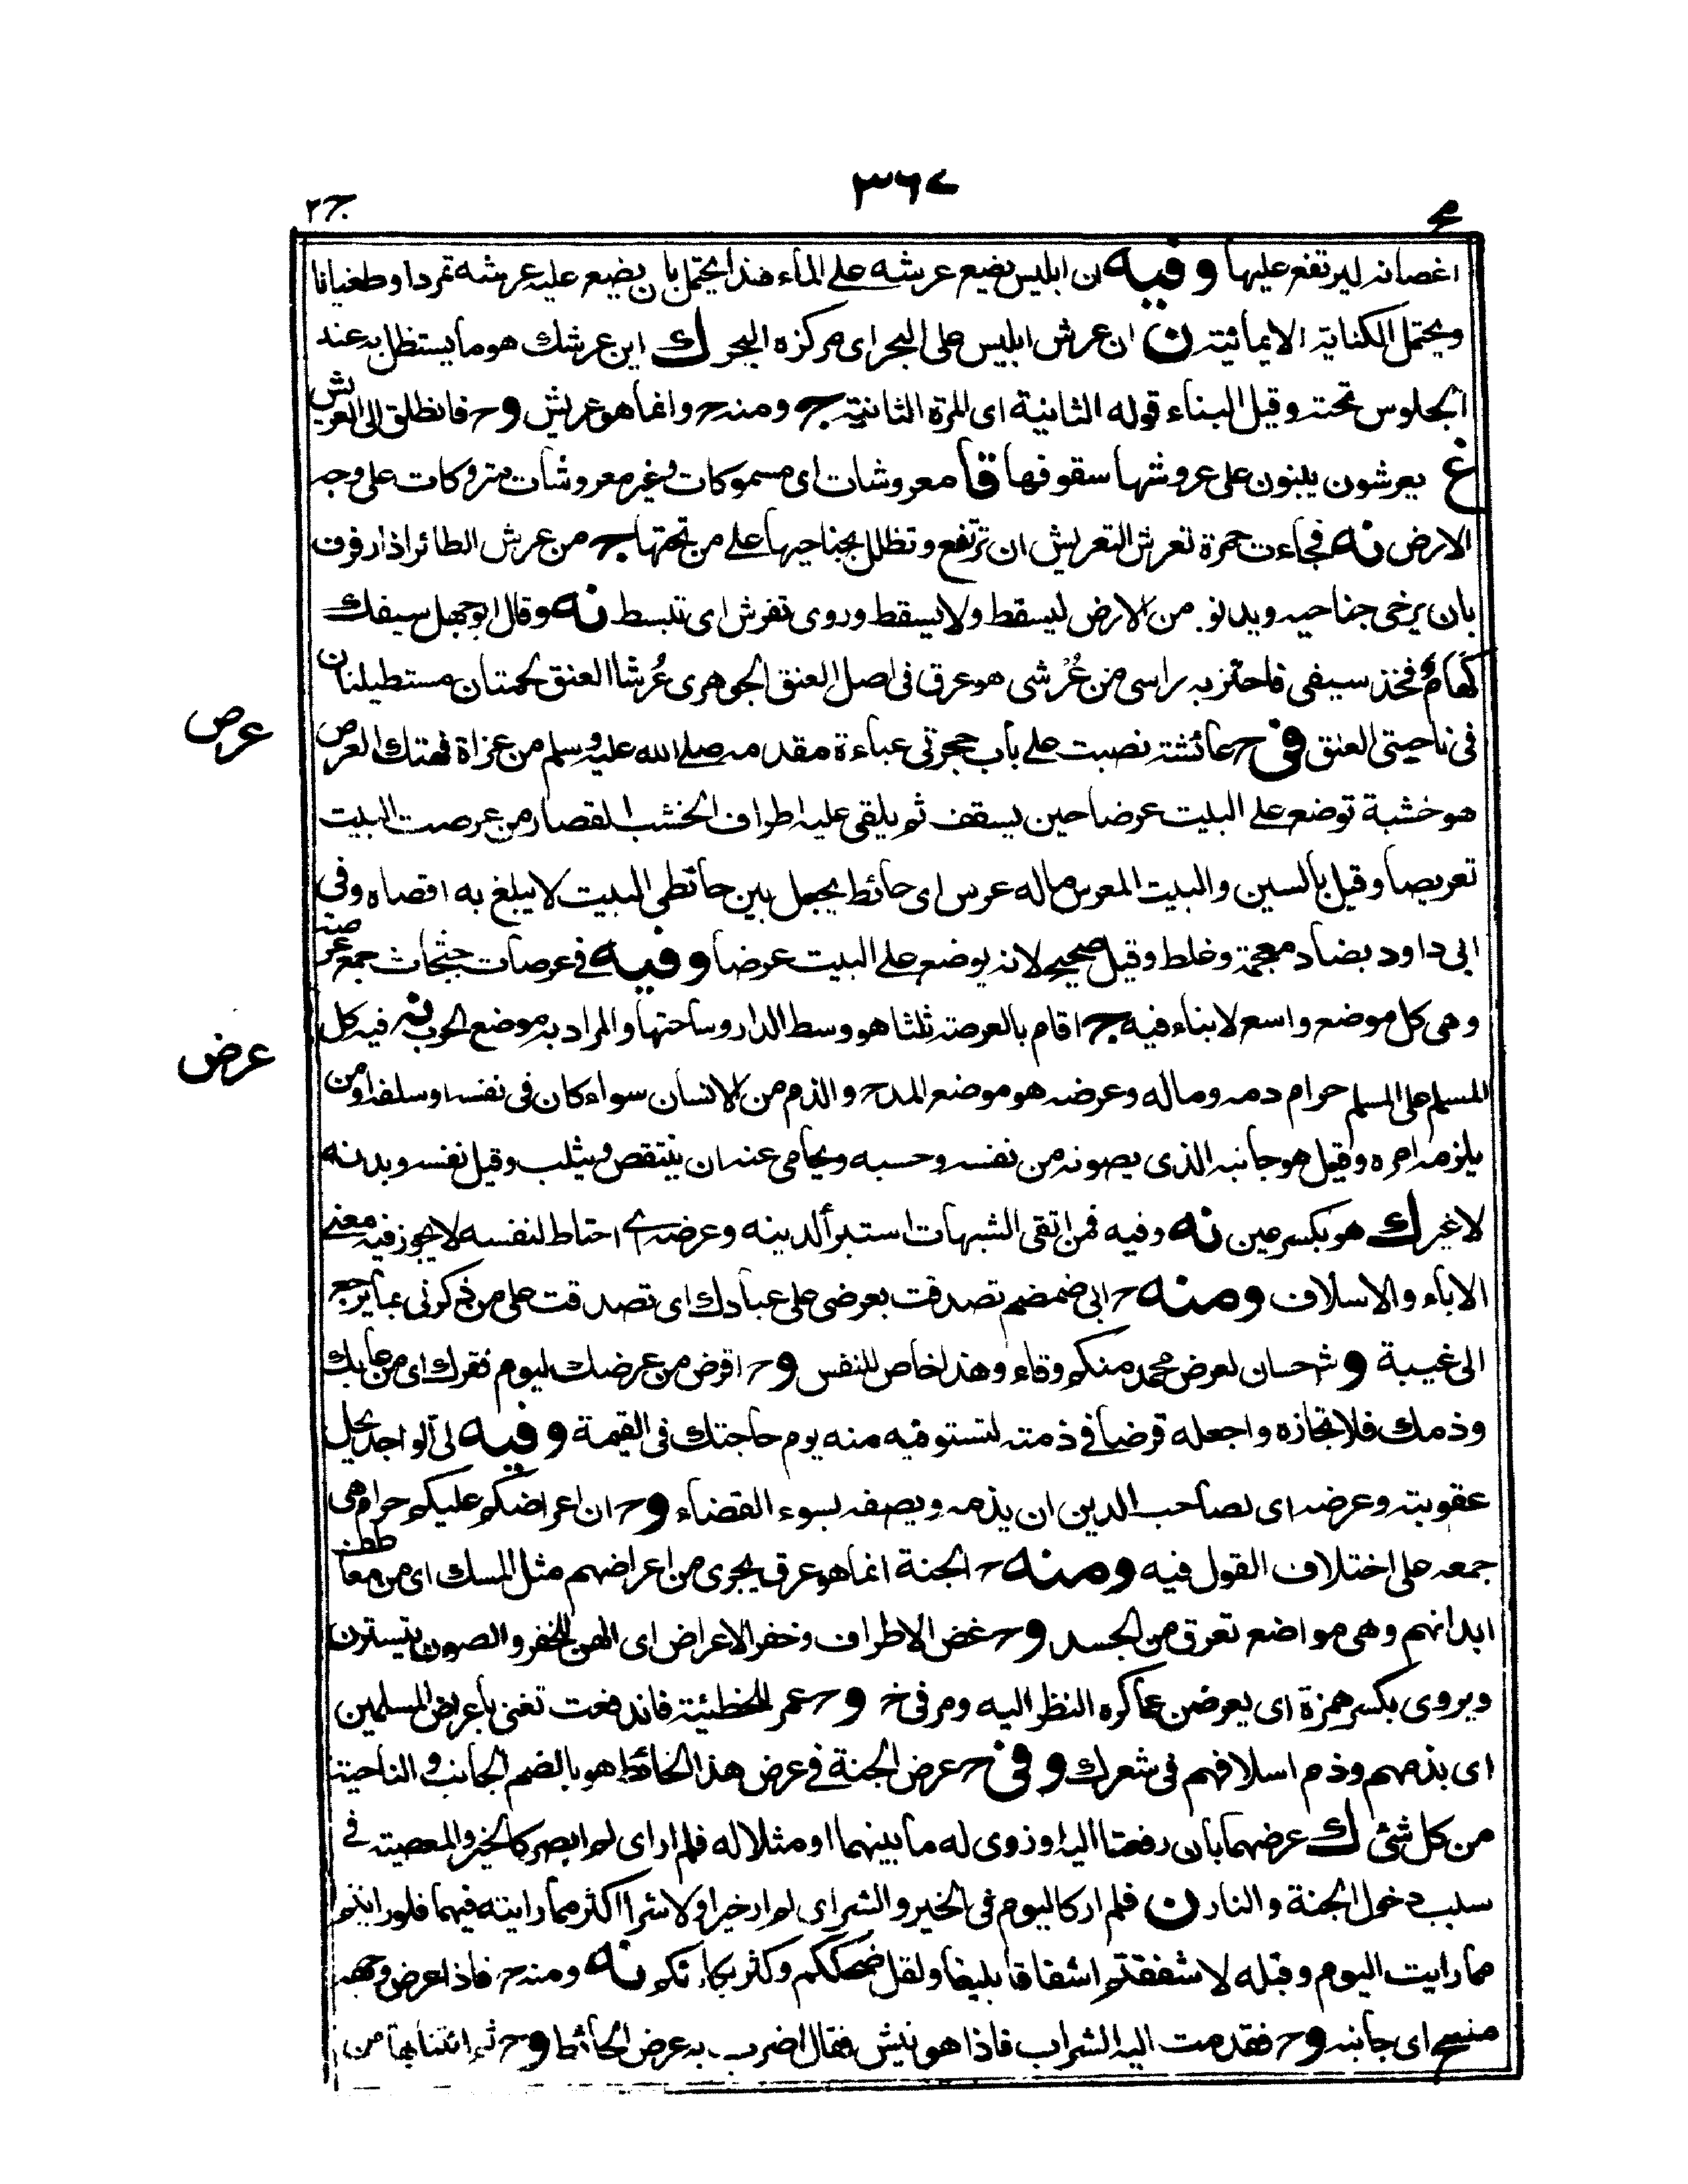 ٣٦٧
ج٢
اغصانه ليرتفع عليها وفيه ان ابليس يضع عرشه على الماء هذا يحتمل بان يضع عليه عرشه تمردا وطغيانا
ويحتمل الكناية الايمائية ن ان عرش ابليس على البحر اى مركزه البحر ك اين عرشك هو ما يستظل به عند
الجلوس تحته وقيل البناء قوله الثانية اى المرة الثانية ج ومنه ح وانما هو عريش وح فانطلق الى العريش
غ يعرشون يبنون على عروشها سقوفها قا معروشات اى مسموكات وغير معروشات متروكات على وجه
الارض نه فجاءت حمرة تعرش التعريش ان ترتفع وتظلل بجناحيها على من تحتها ج من عرش الطائر اذا رفرف
بان يرخى جناحيه ويدنو من الارض ليسقط ولا يسقط وروى تفرش اى تتبسط نه وقال ابو جهل سيفك
كهام فخذ سيفى فاحتز به راسى من عُرْشى هو عرق فى اصل العنق الجوهرى عُرشا العنق لحمتان مستطيلتان
فى ناحيتى العنق فى ح عائشة نصبت على باب حجرتى عباءة مقدمه صلى الله عليه وسلم من غزاة فهتك العرص
عرص
هو خشبة توضع على البيت عرضا حين يسقف ثم يلقى عليه اطراف الخشب القصار من عرصت البيت
تعريصا وقيل بالسين والبيت المعرس ماله عرس اى حائط يجعل بين حائطى البيت لا يبلغ به اقصاه وفى
ابى داود بضاد معجمة وغلط وقيل صحيح لانه يوضع على البيت عرضا وفيه فى عرصات جثجاث جمع عرصة
وهى كل موضع واسع لا بناء فيه ج اقام بالعرصة ثلثا هو وسط الدار وساحتها والمراد به موضع الحرب نه فيه كل
عرض
المسلم على المسلم حرام دمه وماله وعرضه هو موضع المدح والذم من الانسان سواء كان فى نفسه او سلفه او من
يلزمه امره وقيل هو جانبه الذى يصونه من نفسه وحسبه ويحامى عنه ان ينتقص ويثلب وقيل نفسه وبدنه
لا غير ك هو بكسر عين نه وفيه فمن اتقى الشبهات استبرأ لدينه وعرضه اى احتاط لنفسه لا يجوز فيه معنى
الاباء والاسلاف ومنه ح ابى ضمضم تصدقت بعرضى على عبادك اى تصدقت على من ذكرنى بما يرجع
الى غيبة وش حسان لعرض محمد منكم وقاء وهذا خاص للنفس وح اقرض من عرضك ليوم فقرك اى من عابك
وذمك فلا تجازه واجعله قرضا فى ذمته لتستوفيه منه يوم حاجتك فى القيمة وفيه لى الواجد يحل
عقوبته وعرضه اى لصاحب الدين ان يذمه ويصفه بسوء القضاء وح ان اعراضكم عليكم حرام هى
جمعه على اختلاف القول فيه ومنه ح الجنة انما هو عرق يجرى من اعراضهم مثل المسك اى من معاطف
ابدانهم وهى مواضع تعرق من الجسد وح غض الاطراف وخفر الاعراض اى الخفر والصون يتسترن
ويروى بكسر همزة اى يعرضن عما كره النظر اليه ومر فى خ وح عمر للحطيئة فاندفعت تغنى باعراض المسلمين
اى بذمهم وذم اسلافهم فى شعرك وفى ح عرض الجنة فى عرض هذا الحائط هو بالضم الجانب والناحية
من كل شئ ك عرضهما بان رفعتا اليه او زوى له ما بينهما او مثلا له فلم ار اى لم ابصر كالخير والمعصية فى
سبب دخول الجنة والنار ن فلم ار كاليوم فى الخير والشر اى لم ار خيرا ولا شرا اكثر مما رايته فيهما فلو رايتم
مما رايت اليوم وقبله لاشفقتم اشفاقا بليغا ولقل ضحككم وكثر بكاءكم نه ومنه ح فاذا عرض وجهه
منسح اى جانبه وح فقدمت اليه الشراب فاذا هو نيش فقال اضرب به عرض الحائط وح ثم ائتنا بها من